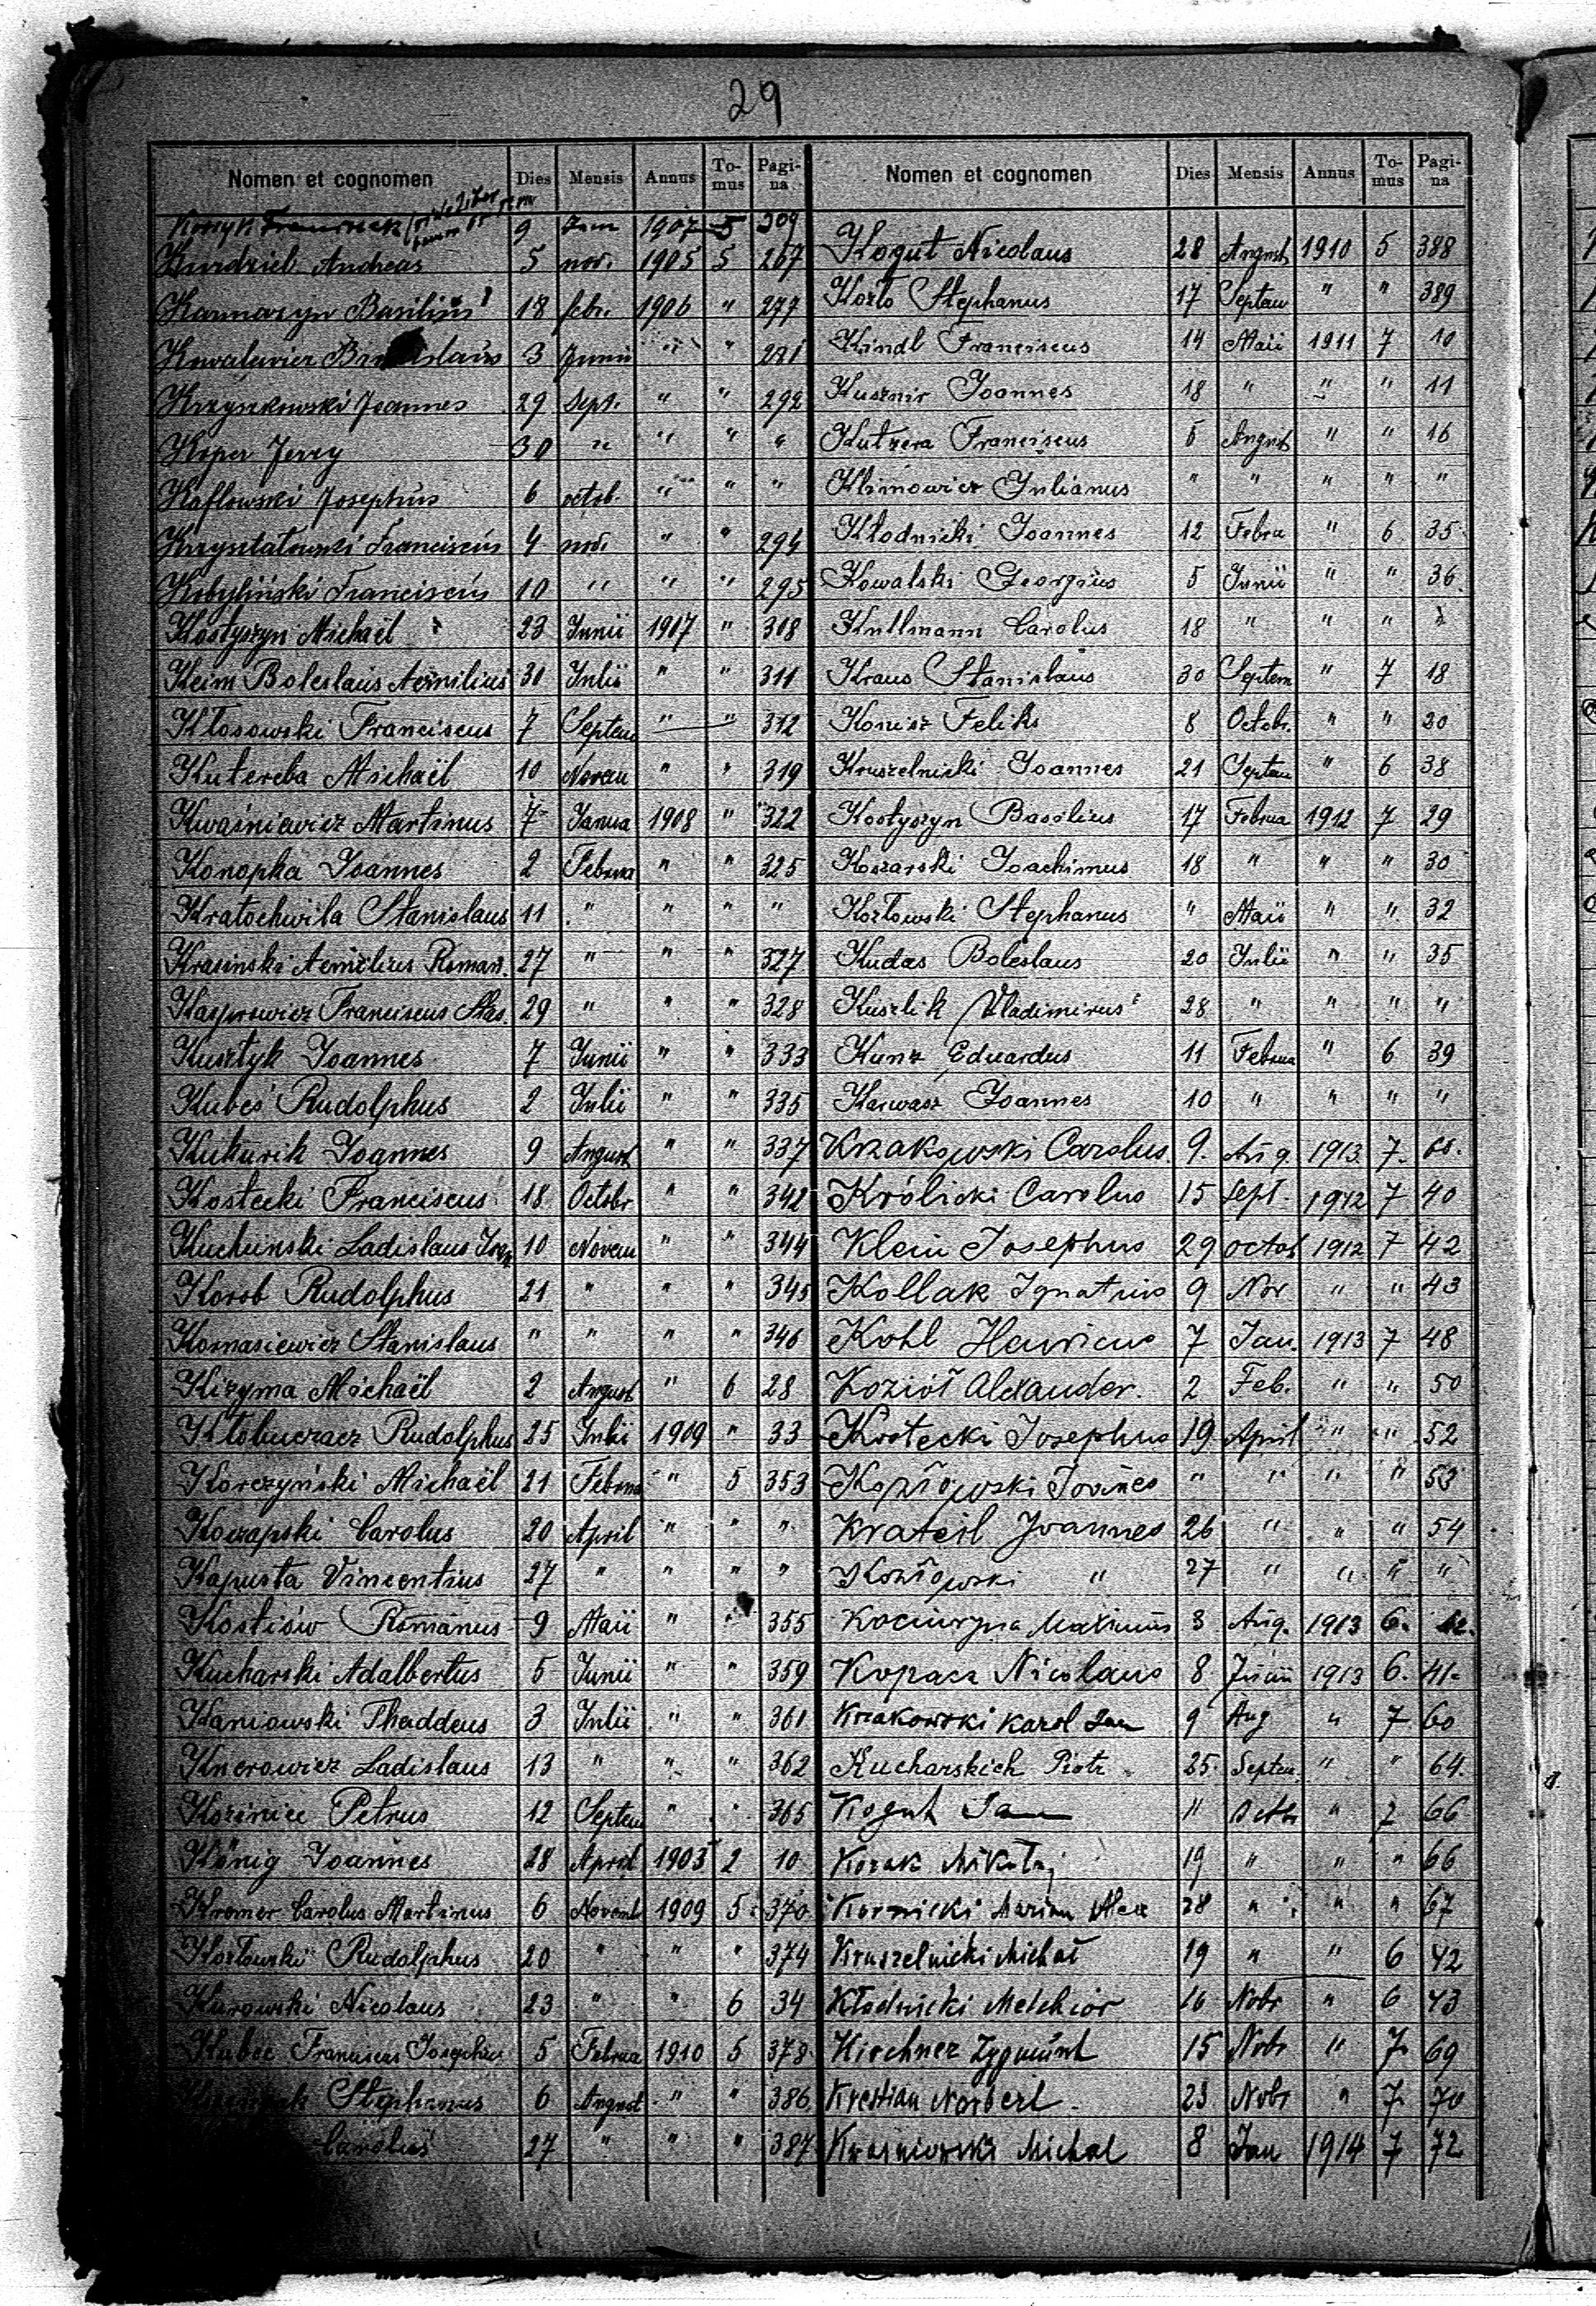 29
Nomen et cognomen Dies Mensis Annus To-mus Pagi-na
9 1907 5 309
Kurdziel Andreas 5 nov. 1905 5 267
Karmazyn Basilius 18 febr. 1906 " 277
Kowalewicz 3 Junii " " 281
Krzyszkowski Joannes 29 Sept. " " 292
Koper Jerzy 30 " " " "
Kaflowski Josephus 6 octob. " " "
Krzyształowski Franciscus 4 nov. " " 294
Kobyliński Franciscus 10 " " " 295
Kostyszyn Michaël 23 Junii 1907 " 308
Keim Boleslaus Aemilius 31 Julii " " 311
Kłosowski Franciscus 7 Septem " " 312
Kutereba Michaël 10 Novem " " 319
Kwaśniewicz Martinus 7 Janua 1908 " 322
Konopka Joannes 2 Februa " " 325
Kratochwila Stanislaus 11 " " " "
Krasinski Aemilius Roman. 27 " " " 327
Kasprowicz Franciscus Stas. 29 " " " 328
Kusztyk Joannes 7 Junii " " 333
Kubeś Rudolphus 2 Julii " " 335
Kukurik Joannes 9 August " " 337
Kostecki Franciscus 18 Octobr " " 342
Kuchinski Ladislaus 10 Novem " " 344
Korob Rudolphus 21 " " " 345
Komasiewicz Stanislaus " " " " 346
Kizyma Michaël 2 August " 6 28
Rudolphus 25 Julii 1909 " 33
Korczyński Michaël 21 Februa " 5 353
Koczapski Carolus 20 April " " "
Kapusta Vincentius 27 " " " "
Kostiów Romanus 9 Maii " " 355
Kucharski Adalbertus 5 Junii " " 359
Kaniowski Thaddeus 3 Julii " " 361
Knerowicz Ladislaus 13 " " " 362
Petrus 12 Septem " " 365
König Joannes 28 April 1903 2 10
Kromer Carolus Martinus 6 Novemb 1909 5 370
Kozłowski Rudolphus 20 " " " 374
Kurowski Nicolaus 23 " " 6 34
Franciscus Josephus 5 Februa 1910 5 378
Stephanus 6 August " " 386
Carolus 27 " " " 387
Nomen et cognomen Dies Mensis Annus To-mus Pagi-na
Kogut Nicolaus 28 August 1910 5 388
Kozło Stephanus 17 Septem " " 389
Kindl Franciscus 14 Maii 1911 7 10
Kusznir Joannes 18 " " " 11
Kutzera Franciscus 5 August " " 16
Klimowicz Julianus " " " " "
Kłodnicki Joannes 12 Febru " 6 35
Kowalski Georgius 5 Junii " " 36
Kullmann Carolus 18 " " "
Kraus Stanislaus 30 Septem " 7 18
Konisz Feliks 8 Octobr. " " 20
Kruszelnicki Joannes 21 Septem " 6 38
Kostyszyn Basilius 17 Februa 1912 7 29
Kozarski Joachimus 18 " " " 30
Kozłowski Stephanus " Maii " " 32
Kudas Boleslaus 20 Julii " " 35
Kuszlik Vladimirus 28 " " " "
Kunz Eduardus 11 Februa " 6 39
Karwasz Joannes 10 " " " "
Krzakowski Carolus. 9. Aug. 1913 7. 60.
Królicki Carolus 15 Sept. 1912 7 40
Klein Josephus 29 octob 1912 7 42
Kollak Ignatius 9 Nov " " 43
Kohl Henricus 7 Jan. 1913 7 48
Kozioł Alexander. 2 Feb. " " 50
Kostecki Josephus 19 April " " 52
Kozłowski Joannes " " " " 53
Krateil Joannes 26 " " " 54
Kozłowski " 27 " " " "
Maximus 3 Aug. 1913 6.
Kopacz Nicolaus 8 Junii 1913 6. 41.
Krzakowski Karol Jan 9 Aug " 7 60
Kucharskich Piotr 25 Septem. " " 64.
Kogut Jan 11 Octb " 7 66
Kozak Mikołaj 19 " " " 66
Kornicki Marian Alex 28 " " " 67
Kruszelnicki Michał 19 " " 6 42
Kłodnicki Melchior 16 Nobr " 6 43
Kirchner Zygmunt 15 Nobr " 7 69
Krestian Norbert 23 Nobr " 7 70
Kwaśniowski Michal 8 Jan 1914 7 72